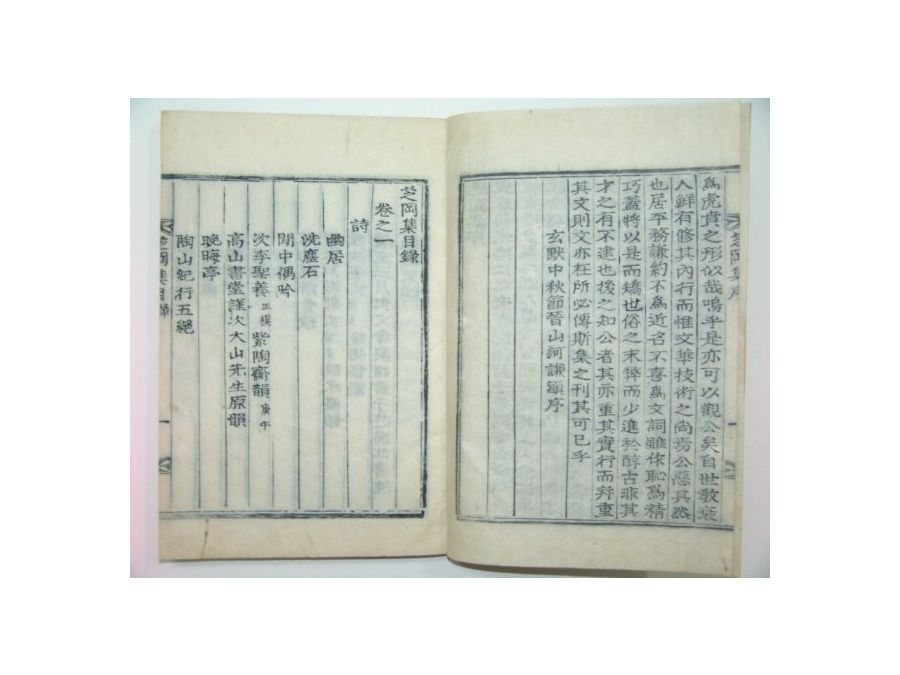 爲虎賁之形似哉嗚乎是亦可以觀公矣自世敎衰
人鮮有修其內行而惟文華技術之尙焉公惡其然
也居平務謙約不爲近名不喜爲文詞雖侔恥爲精
巧蓋將以是而矯也俗之末弊而少進於醇古非其
才之有不逮也後之知公者其亦重其實行而辩重
其文則文亦在所必傳斯集之刊其可已乎
玄黓中秋節晉山河謙鎭序
芝岡集序
一
芝岡集目錄
卷之一
詩
幽居
洗塵石
閒中偶吟
次李聖養正模紫陶齋韻庚午
高山書堂謹次大山先生原韻
晩晦亭
陶山紀行五絶
芝岡集目錄
一